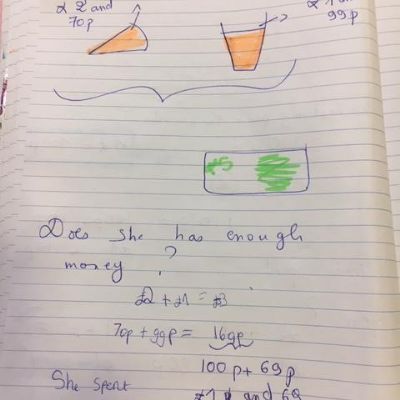 £ 2 and
70p
99p
£5
Does she has enough
money ?
£2 + £1 = £3
70p + 99p = 169p
100p + 69p
She spent
and 69